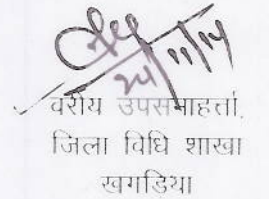 24/11/14
वरीय उपसमाहर्त्ता,
जिला विधि शाखा
खगड़िया